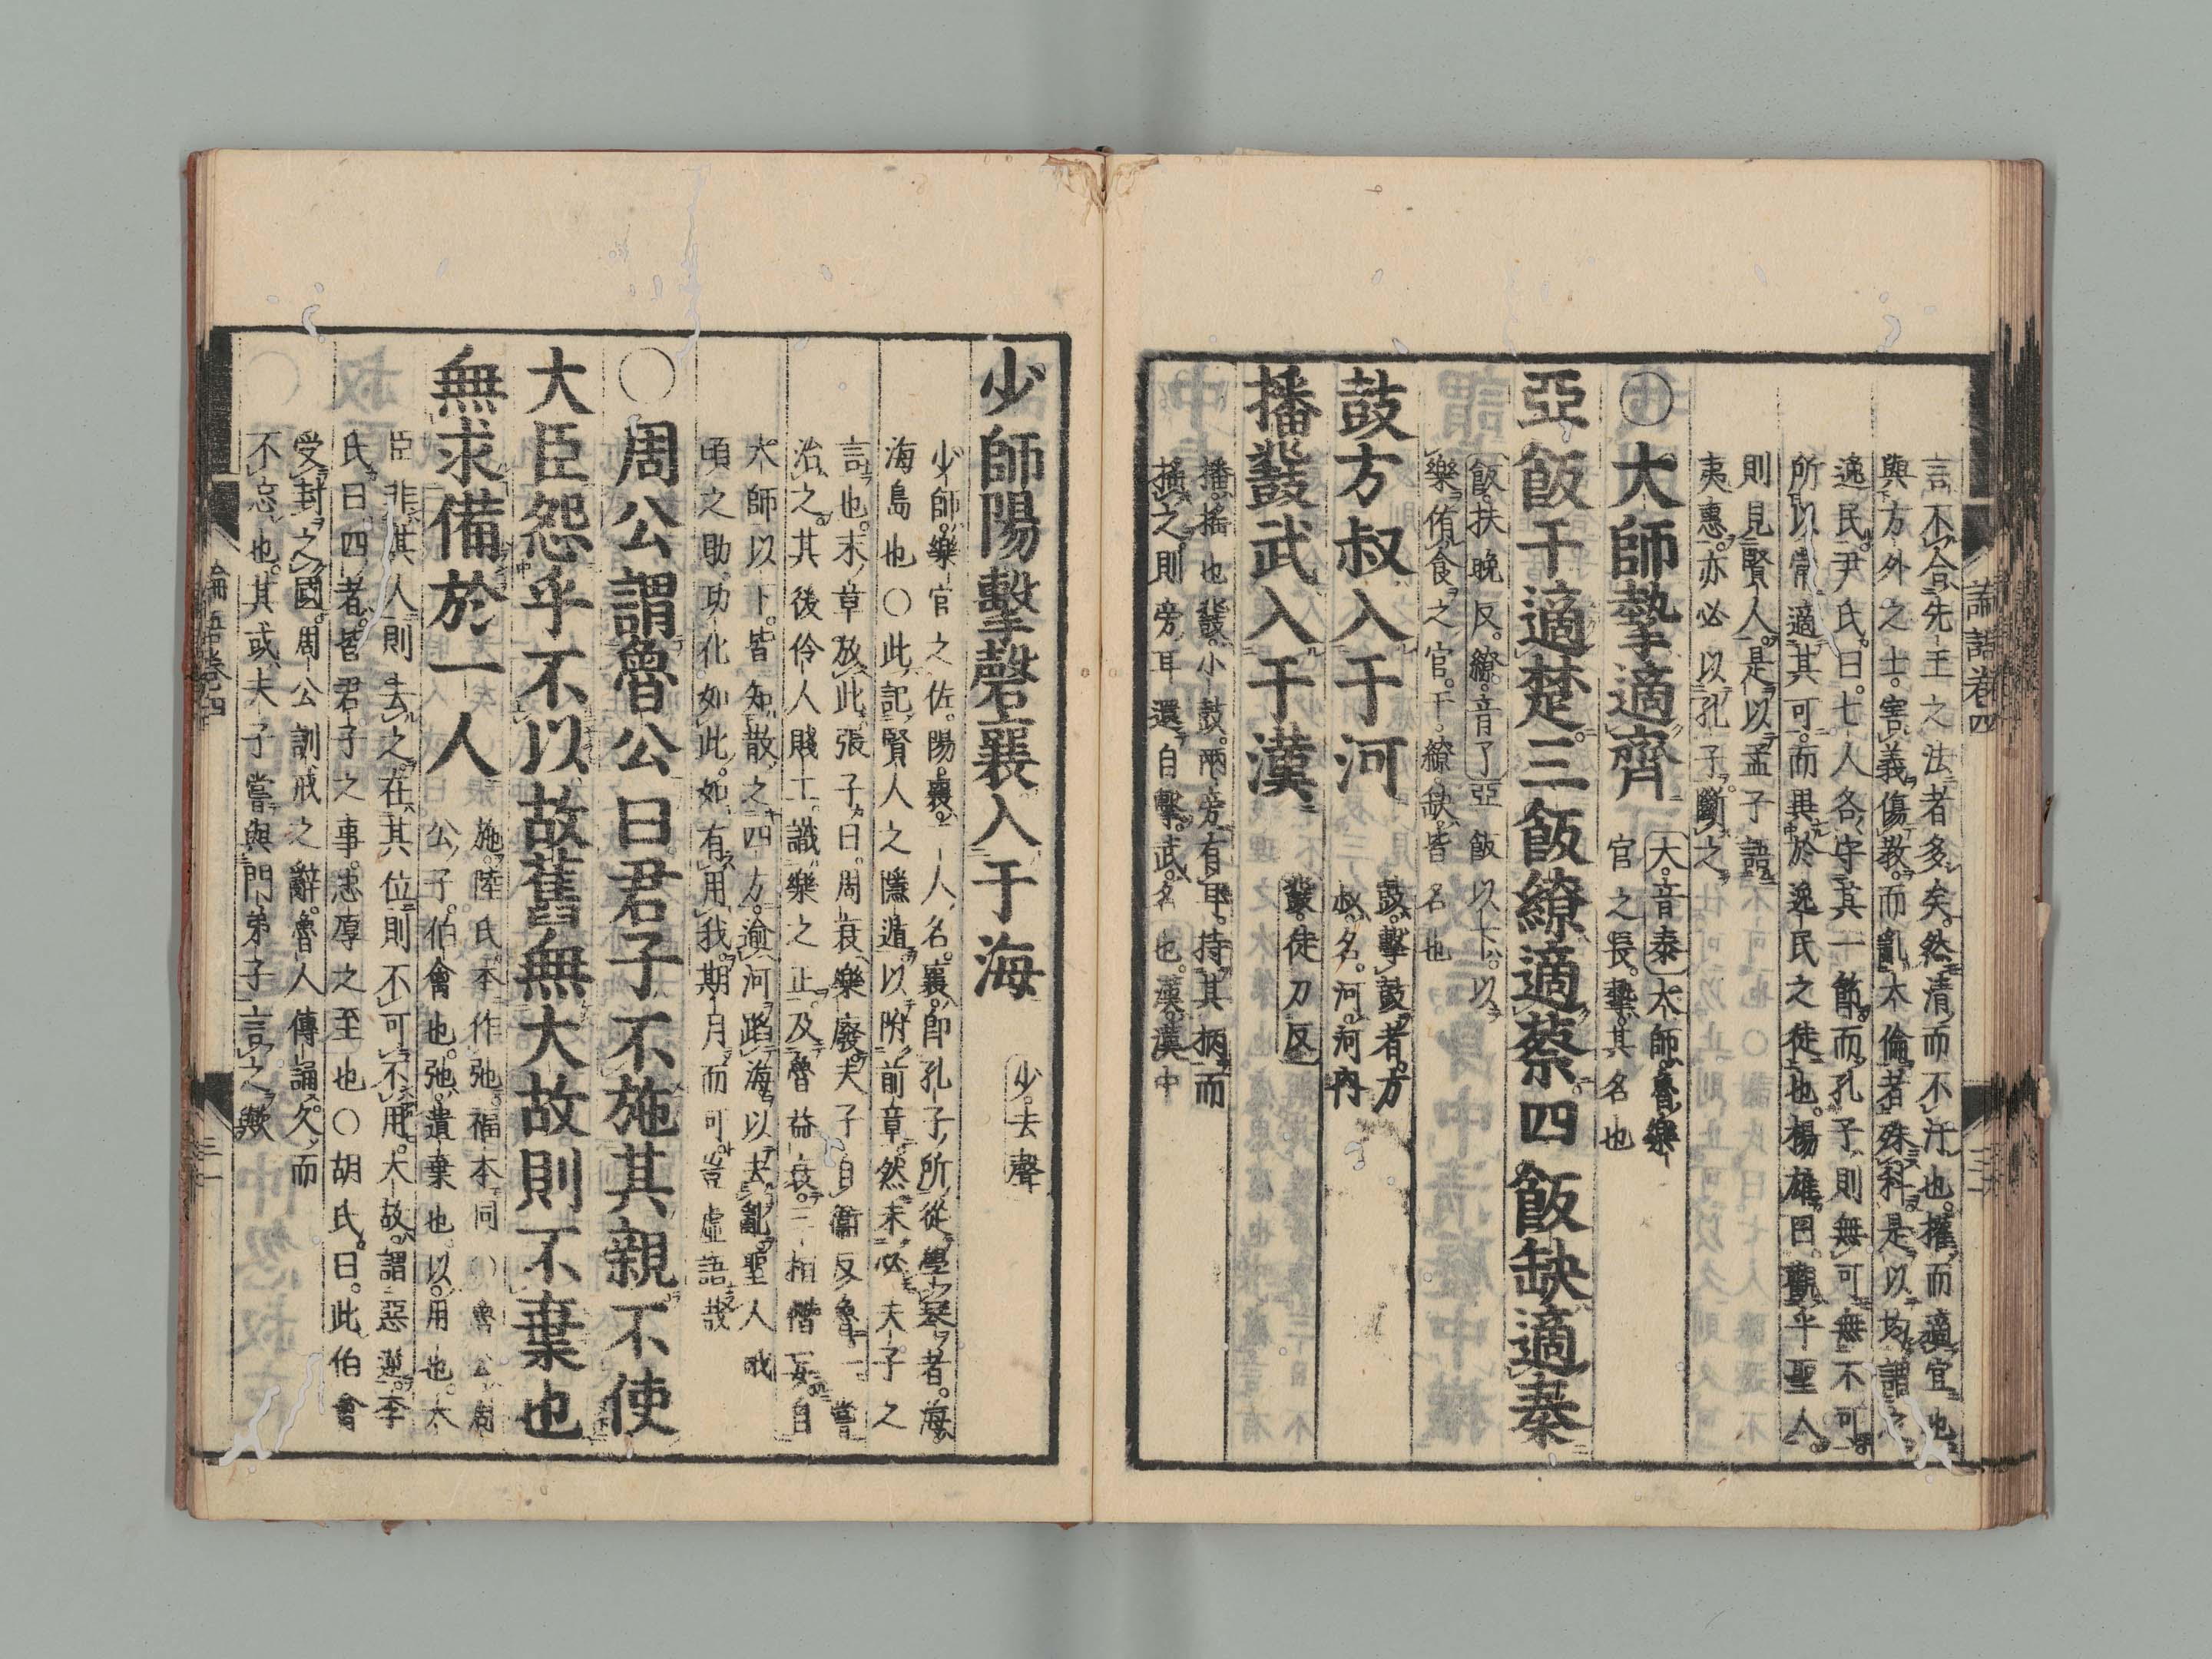 言不合先王之法者多矣。然清而不汙也。權而適宜也。
與方外之士。害義傷教。而亂大倫者殊科。是以均謂之
逸民。尹氏曰。七人各守其一節。而孔子則無可無不可。
所以常適其可。而異於逸民之徒也。楊雄曰。觀乎聖人
則見賢人。是以孟子語
夷惠。亦必以孔子斷之
〇大師摯適齊
大。音泰大師。魯樂
官之長。摯。其名也
亞飯干適楚三飯繚適蔡四飯缺適秦
飯。扶晚反。繚。音了亞飯以下。以
樂侑食之官。干。繚缺。皆名也
鼓方叔入于河
鼓。擊鼓者。方
叔。名。河。河內
播鼗武入于漢
鼗。徒刀反
播。搖也鼗。小鼓。兩旁有耳。持其柄而
搖之。則旁耳還自擊。武。名也。漢。漢中
論語卷四
少師陽擊磬襄入于海
少。去聲
少師。樂官之佐。陽。襄。二人名。襄。即孔子所從學琴者。海。
海島也〇此記賢人之隱遁。以附前章。然未必夫子之
言也。末章放此張子曰。周衰樂廢。夫子自衛反魯。一嘗
治之。其後伶人賤工。識樂之正。及魯益衰。三桓僭妄。自
大師以下。皆知散之四方。逾河蹈海。以去亂。聖人俄
頃之助。功化如此。如有用我。期月而可。豈虛語哉
〇周公謂魯公曰君子不施其親不使
大臣怨乎不以故舊無大故則不棄也
無求備於一人
施。陸氏本作弛。福本同〇魯公周
公子。伯禽也。弛。遺棄也。以。用也。大
臣非其人則去之。在其位則不可不用。大故。謂惡逆。李
氏曰。四者。皆君子之事。忠厚之至也〇胡氏曰。此伯禽
受封之國。周公訓戒之辭。魯人傳誦。久而
不忘也。其或夫子嘗與門弟子言之歟
論語卷四
三一